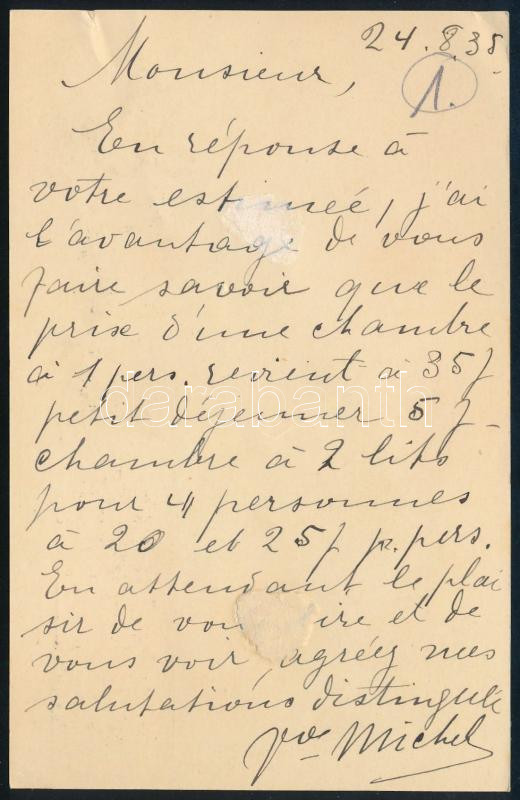 24.8.38
Monsieur,
1.
En réponse à
votre estimeé, j'ai
l'avantage de vous
faire savoir que le
prix d'une chambre
à 1 pers. revient à 35 f
petit déjeuner 5 f -
darabanth
chambre à 2 lits
pour 4 personnes
à 20 et 25 f p. pers.
En attendant le plai
sir de vous lire et de
vous voir, agréez mes
salutations distingueé
Vve Michel